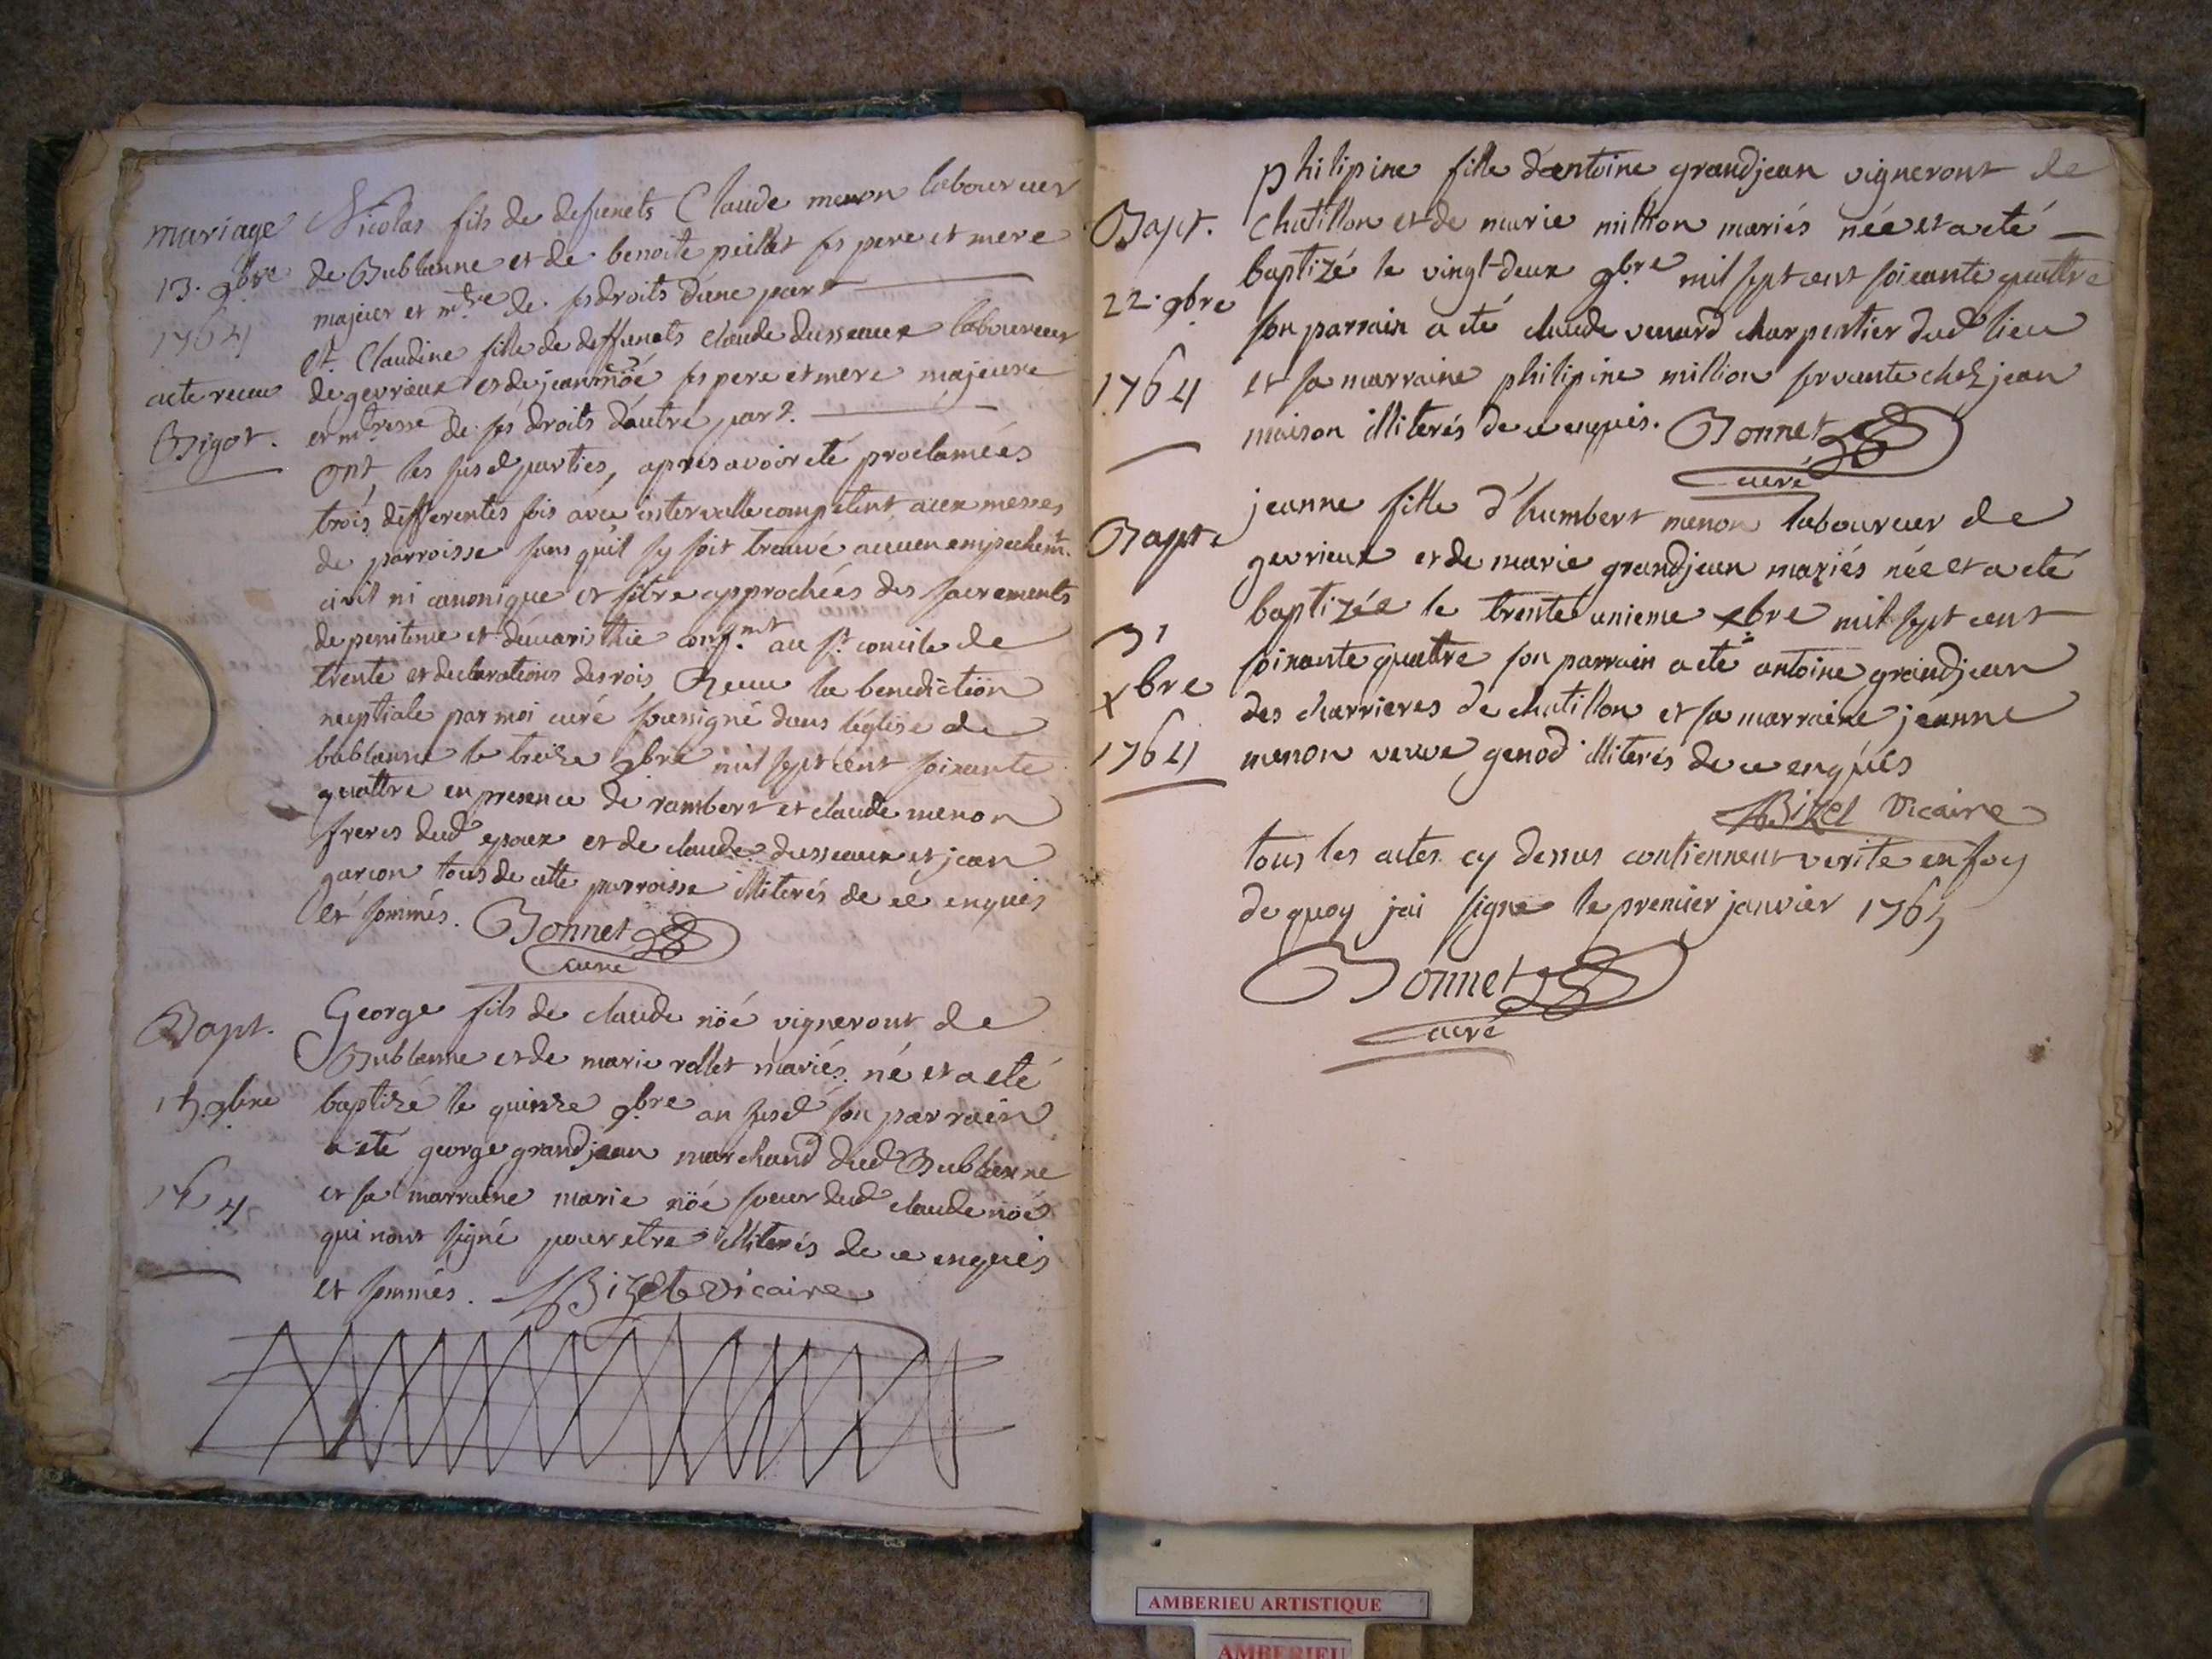 mariage
13. 9bre
1764
acte receu
Bigot.
Nicolas fils de defunets Claude menon laboureur
de Bublanne et de benoite peillet ses pere et mere
majeur et mtre de ses droits d'une part
et Claudine fille de deffunets claude dusseaux laboureur
de gevrieux et de jeanne nöé ses pere et mere majeure
et mtresse de ses droits d'autre part.
ont les susd parties, apres avoir eté proclamées
trois differentes fois avec intervalle competent aux messes
de parroisse sans qu'il sy soit trouvé aucun empechemt.
civil ni canonique et s'etre approchées des sacrements
de penitence et d'eucaristhie conf.mt au st. concile de
trente et declarations des rois Receu la benediction
nuptiale par moi curé soussigné dans l'église de
bublanne le treize 9bre mil sept cent soixante
quattre en presence de rambert et claude menon
freres dud epoux et de claude dusseaux et jean
garcon tous de cette parroisse illiterés de ce enquis
et sommés. Bonnet
curé
Bapt.
15. 9bre
1764
George fils de claude nöé vigneront de
Bublanne et de marie rollet mariés né et a eté
baptizé le quinze 9bre an susd son parrain
a eté george grandjean marchand dud Bublanne
et sa marraine marie nöé soeur dud claude nöé
qui n'ont signé pour etre illiterés de ce enquis
et sommés. Bizet vicaire
Bapt.
22. 9bre
1764
philipine fille d'antoine grandjean vigneront de
chatillon et de marie million mariés née et a eté
baptizé le vingt-deux 9bre mil sept cent soixante quattre
son parrain a eté claude venard charpentier dud lieu
et sa marraine philipine million servante chez jean
maison illiterés de ce enquis. Bonnet
curé
Bapt.
31
xbre
1764
jeanne fille d'humbert menon laboureur de
gevrieux et de marie grandjean mariés née et a eté
baptizée le trente unieme xbre mil sept cent
soixante quattre son parrain a eté antoine grandjean
des charrieres de chatillon et sa marraine jeanne
menon veuve genod illiterés de ce enquis
Bizet vicaire
tous les actes cy dessus contiennent verite en foy
de quoy jai signe le premier janvier 1765
Bonnet
curé
AMBERIEU ARTISTIQUE
AMBERIEU